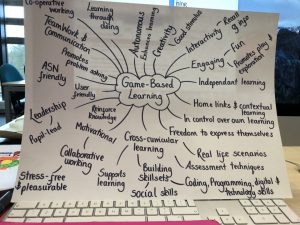 Co-operative
working
Learning
through
doing
Teamwork &
Communication
Autonomous
Enhances learning
Creativity
Good stimulus
Interactivity
Engaging
Fun
Promotes play &
Promotes
problem solving
ASN
friendly
User
friendly
Game-Based
Learning
Independent learning
Home links &
contextual
learning
In control over own learning
Freedom to express themselves
Reinforce
knowledge
Leadership
Pupil-lead
Motivational
Cross-curricular
learning
Real life scenarios
Assessment techniques
Collaborative
working
Building
skillsets
Coding, Programming, digital &
technology skills
Stress-free &
pleasurable
Supports
learning
Social skills